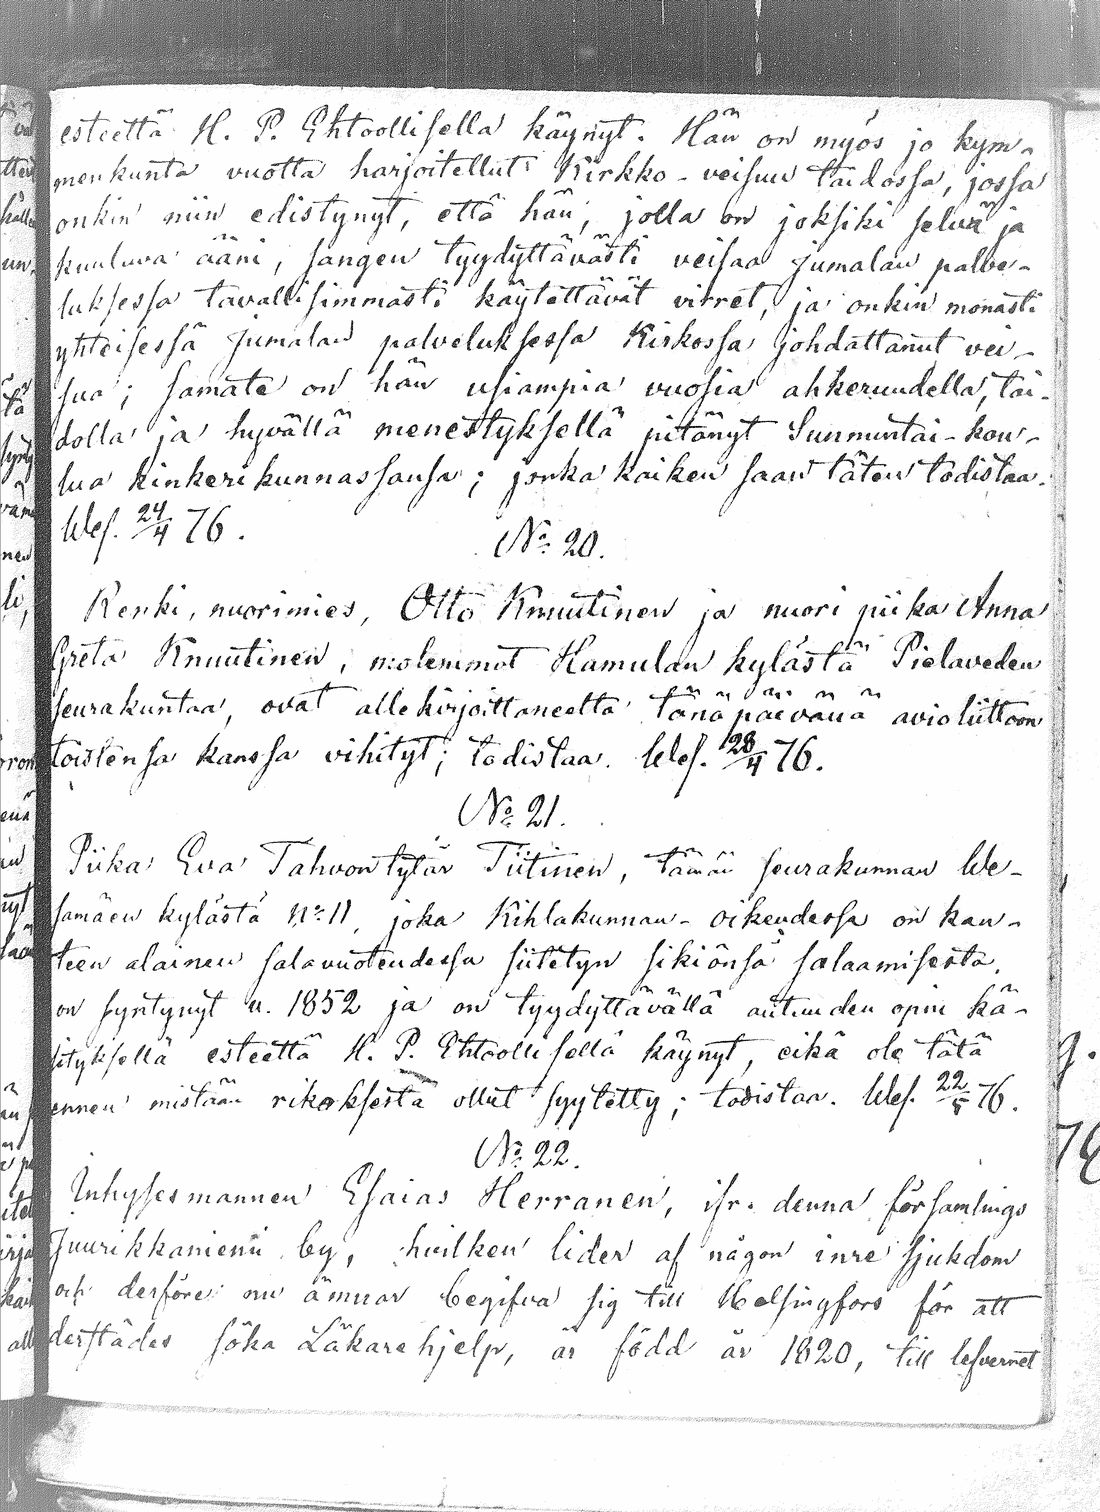 esteettä H. P. Ehtoollisella käynyt. Hän on myös jo kym-
menkunta vuotta harjoitellut Kirkko-veisuu taidossa, jossa
onkin niin edistynyt, että hän, jolla on joksiki selvä ja
kuuluva ääni, sangen tyydyttävästi veisaa Jumalan palve-
luksessa tavallisimmasti käytettävät virret, ja onkin monasti
yhteisessä Jumalan palveluksessa Kirkossa johdattanut vei-
sua; samate on hän usiampia vuosia ahkeruudella, tai-
dolla ja hyvällä menestyksellä pitänyt Sunnuntai-kou-
lua kinkerikunnassansa; jonka kaiken saan täten todistaa.
Wes. 24/4 76.
No 20.
Renki, nuorimies, Otto Knuutinen ja nuori piika Anna
Greta Knuutinen, molemmat Hamulan kylästä Pielaveden
seurakuntaa, ovat allekirjoittaneelta tänäpäivänä avioliittoon
toistensa kanssa vihityt; todistaa. Wes. 28/4 76.
No 21.
Piika Eva Tahvontytär Tiitinen, tämän seurakunnan We-
samäen kylästä No 11, joka Kihlakunnan-oikeudessa on kan-
teen alainen salavuoteudessa siitetyn sikiönsä salaamisesta,
on syntynyt v. 1852 ja on tyydyttävällä autuuden opin kä-
sityksellä esteettä H. P. Ehtoollisella käynyt, eikä ole tätä
ennen mistään rikoksesta ollut syytetty; todistaa. Wes. 22/5 76.
No 22.
Inhysesmannen Esaias Herranen, ifr. denna församlings
Juurikkaniemi by, hvilken lider af någon inre sjukdom
och derföre nu ämnar begifva sig till Helsingfors för att
derstädes söka Läkarehjelp, är född år 1820, till lefvernet